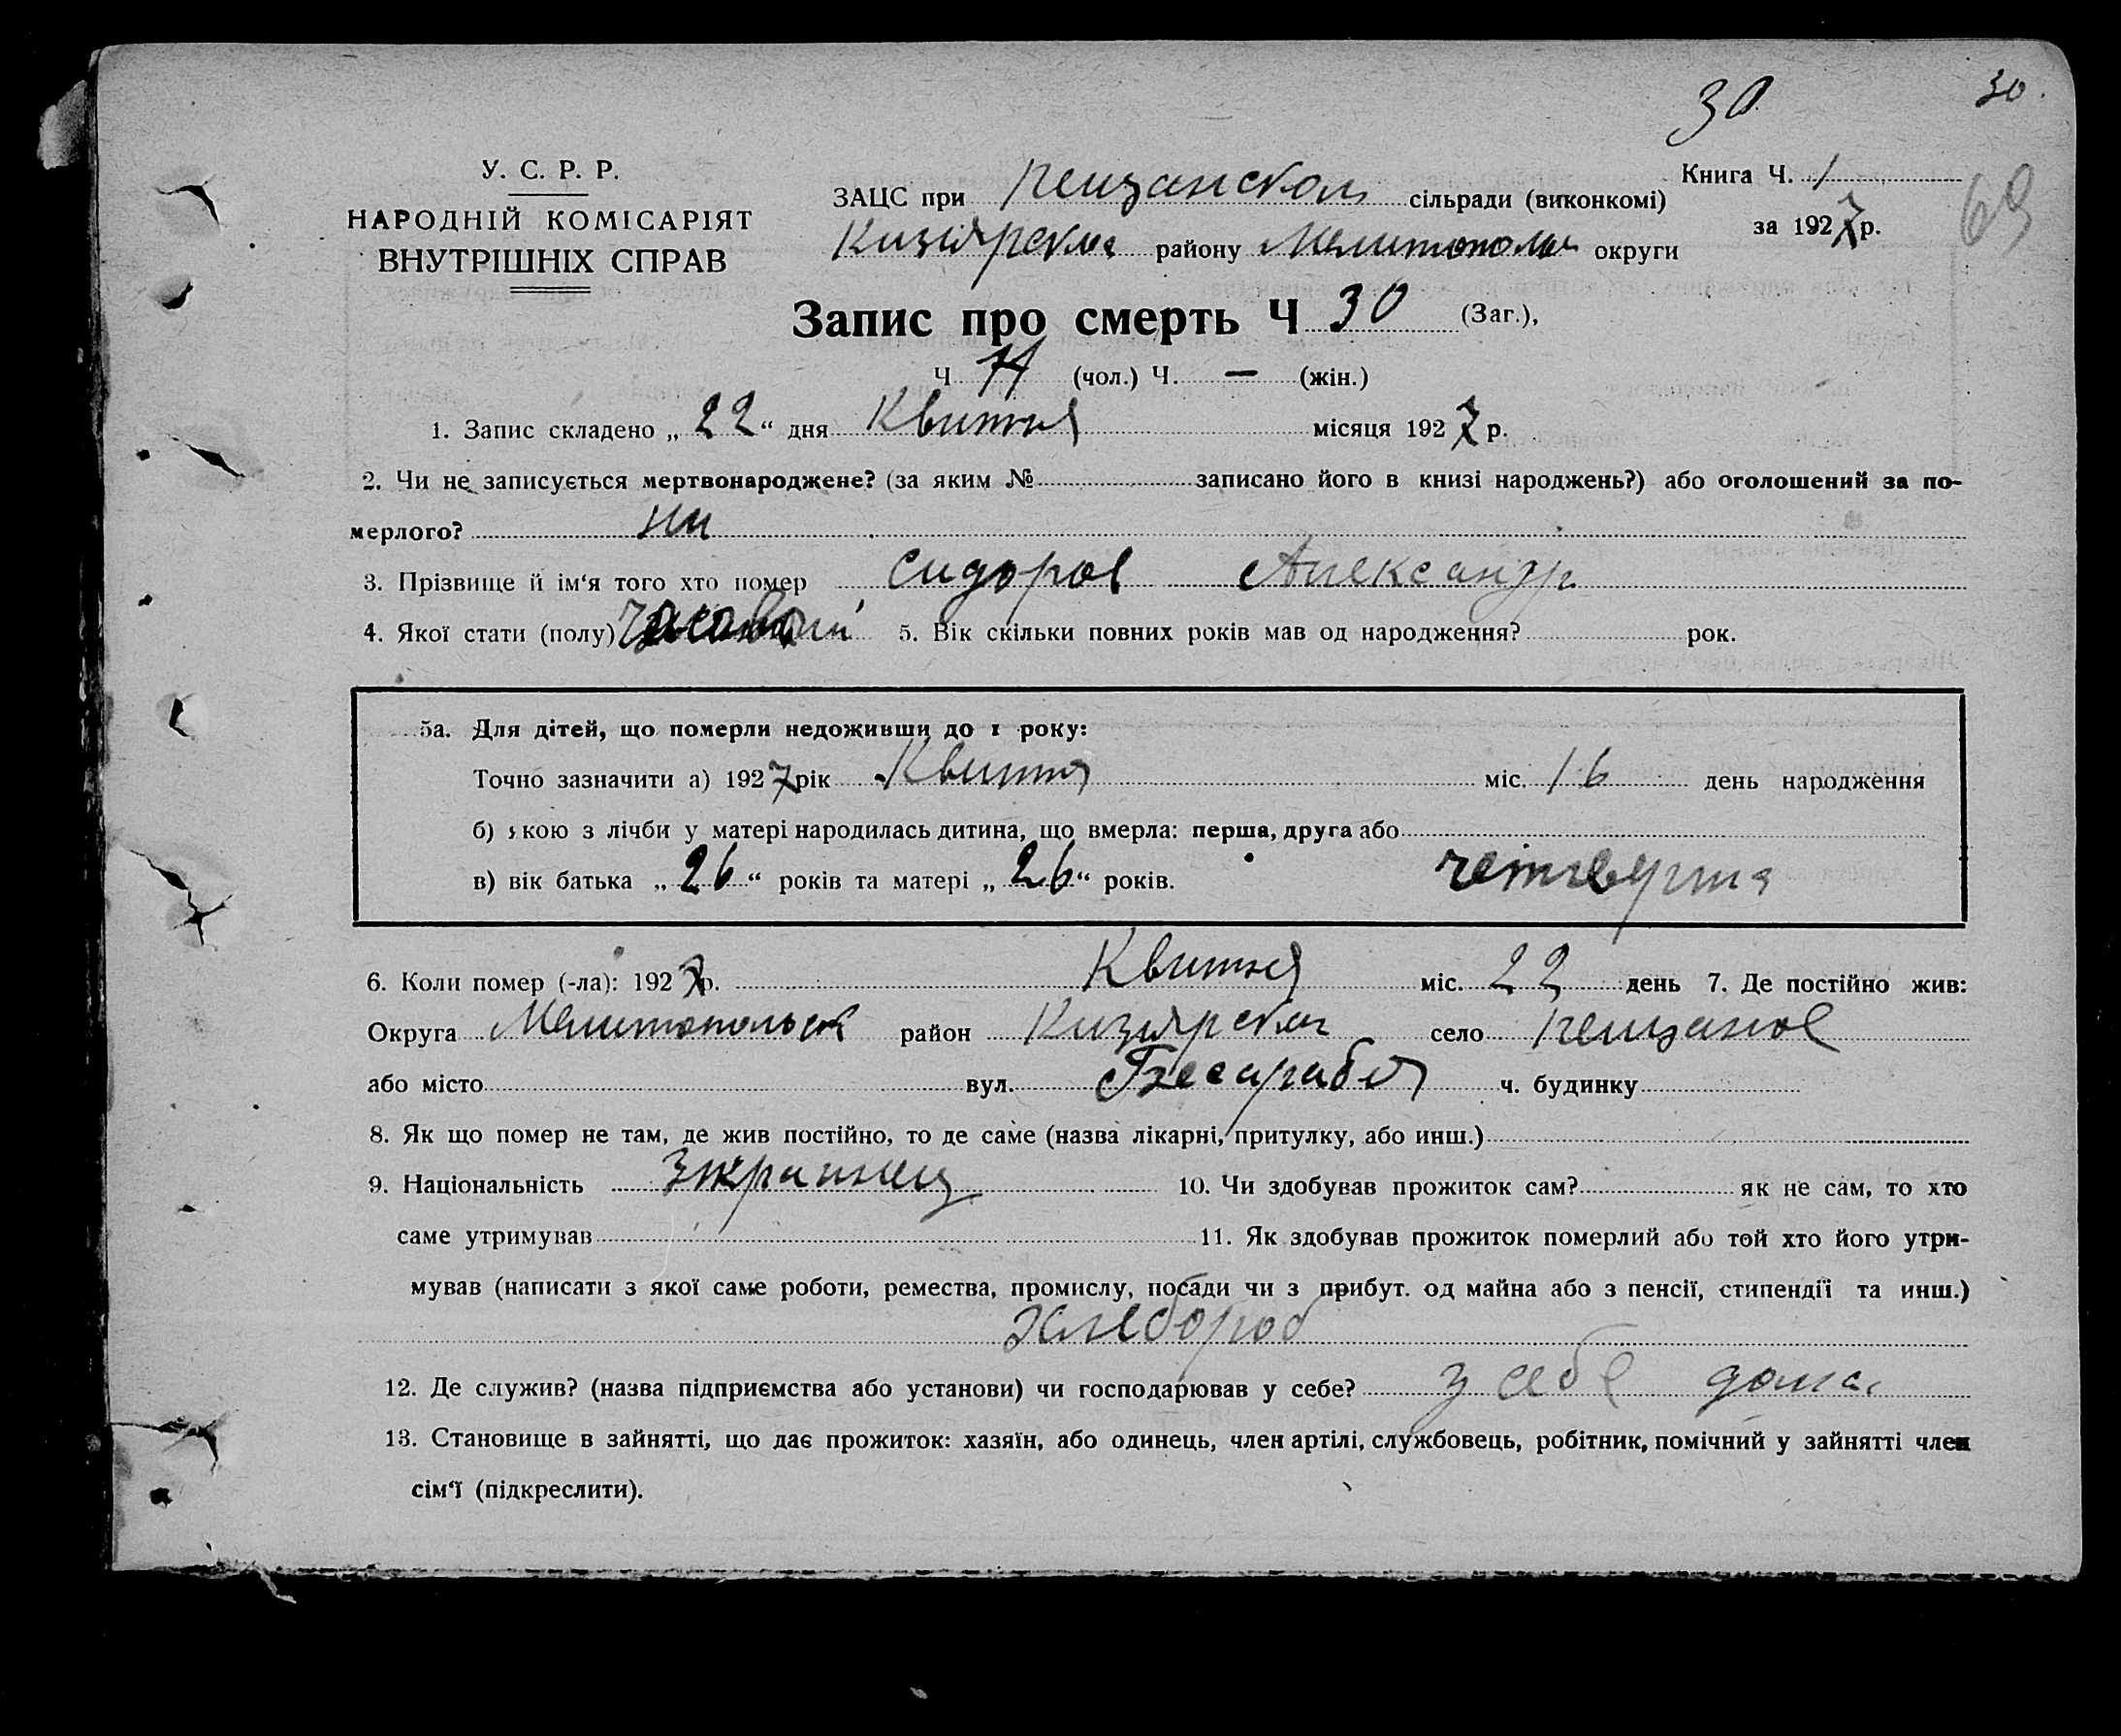 30 30.
У. С. Р. Р.
НАРОДНІЙ КОМІСАРІЯТ
ВНУТРІШНІХ СПРАВ
ЗАЦС при Пещанском сільради (виконкомі)
Книга Ч. 1
за 1927 р.
69
Кизиярском району Мелитополь округи
Запис про смерть Ч 30 (Заг.),
Ч (чол.) Ч. — (жін.)
1. Запис складено „22“ дня Квитня місяця 1927 р.
2. Чи не записується мертвонароджене? (за яким № записано його в книзі народжень?) або оголошений за по-
мерлого? ни
3. Прізвище й ім‘я того хто помер Сидоров Александр
4. Якої стати (полу) 5. Вік скільки повних років мав од народження? рок.
5а. Для дітей, що померли недоживши до 1 року:
Точно зазначити а) 1927 рік Квитня міс. 16 день народження
б) якою з лічби у матері народилась дитина, що вмерла: перша, друга або
в) вік батька „26“ років та матері „26“ років. четверта
6. Коли помер (-ла): 1927 р. Квитня міс. 22 день 7. Де постійно жив:
Округа Мелитопольск район Кизиярском село Пещаное
або місто вул. ч. будинку
8. Як що помер не там, де жив постійно, то де саме (назва лікарні, притулку, або инш.)
9. Національність Украинец 10. Чи здобував прожиток сам? як не сам, то хто
саме утримував 11. Як здобував прожиток померлий або той хто його утри-
мував (написати з якої саме роботи, ремества, промислу, посади чи з прибут. од майна або з пенсії, стипендії та инш.)
хлебороб
12. Де служив? (назва підприємства або установи) чи господарював у себе? у себе дома
13. Становище в зайнятті, що дає прожиток: хазяїн, або одинець, член артілі, службовець, робітник, помічний у зайнятті член
сім‘ї (підкреслити).